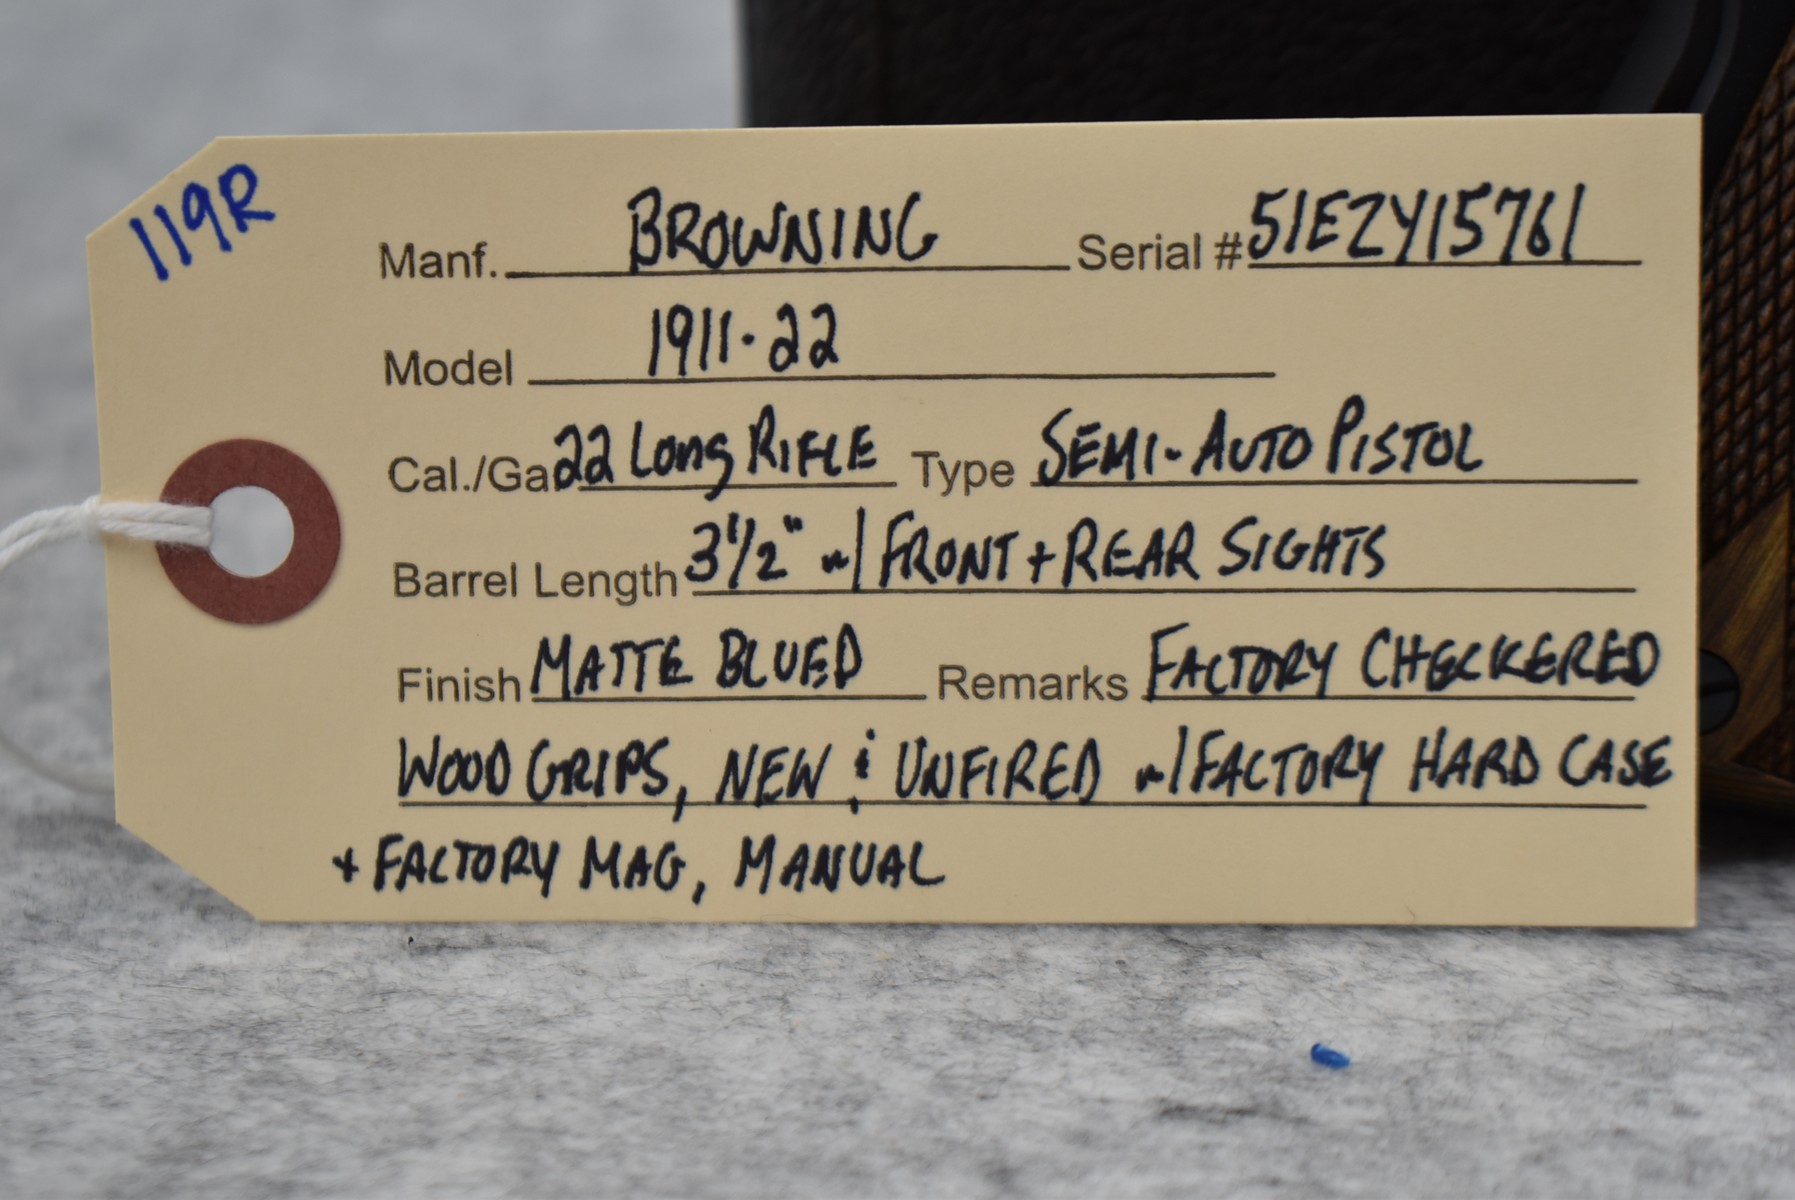 119R
Manf. BROWNING Serial # 51EZY15761
Model 1911-22
Cal./Ga. 22 Long RIFLE Type SEMI-AUTO PISTOL
Barrel Length 3 1/2" w/ FRONT + REAR SIGHTS
Finish MATTE BLUED Remarks FACTORY CHECKERED
WOOD GRIPS, NEW & UNFIRED w/ FACTORY HARD CASE
+ FACTORY MAG, MANUAL